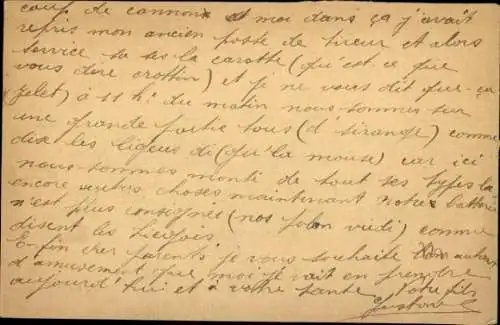 coup de cannon et moi dans ça j'avait
repris mon ancien poste de tireur et alors
service sa la carotte (qu'est ce que
vous dire crottin) et je ne vous dit que ça
à 11 h. du matin nous sommes sur
une grande partie tous (d'strange) comme
dise les ligeus di (qu'la mouse) car ici
nous sommes monté de tout ses types la
encore autres choses maintenant notre batterie
n'est plus consignée (nos) comme
disent les Liégois.
Enfin cher parents je vous souhaite autant
d'amusement que moi je vait en prendre
aujourd'hui et à votre santé Votre fils
Gustave